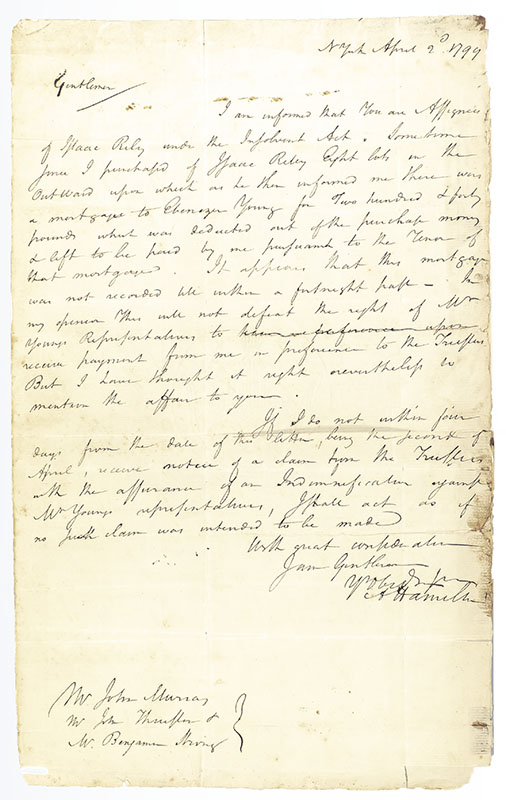 N York April 2d. 1799
Gentlemen
I am informed that You are Assignees
of Isaac Riley under the Insolvent Act. Sometime
since I purchased of Isaac Riley Eight lots in the
Outward upon which as he then informed me there was
a mortgage to Ebenezer Young for Two hundred & forty
pounds which was deducted out of the purchase money
& left to be paid by me pursuant to the Tenor of
that mortgage. It appears that this mortgage
was not recorded till within a fortnight past — In
my opinion This will not defeat the right of Mr
Youngs Representatives to have a preference upon
receive payment from me in preference to the Trustees
But I have thought it right nevertheless to
mention the affair to you.
If I do not within four
days from the date of this letter, being the second of
April, receive notice of a claim from the Trustees
with the assurance of an Indemnification against
Mr Youngs representatives, I shall act as if
no such claim was intended to be made
With great consideration
I am Gentlemen
Yr Obed Ser
A Hamilton
Mr John Murray
Mr John Thurston &
Mr. Benjamin Strong